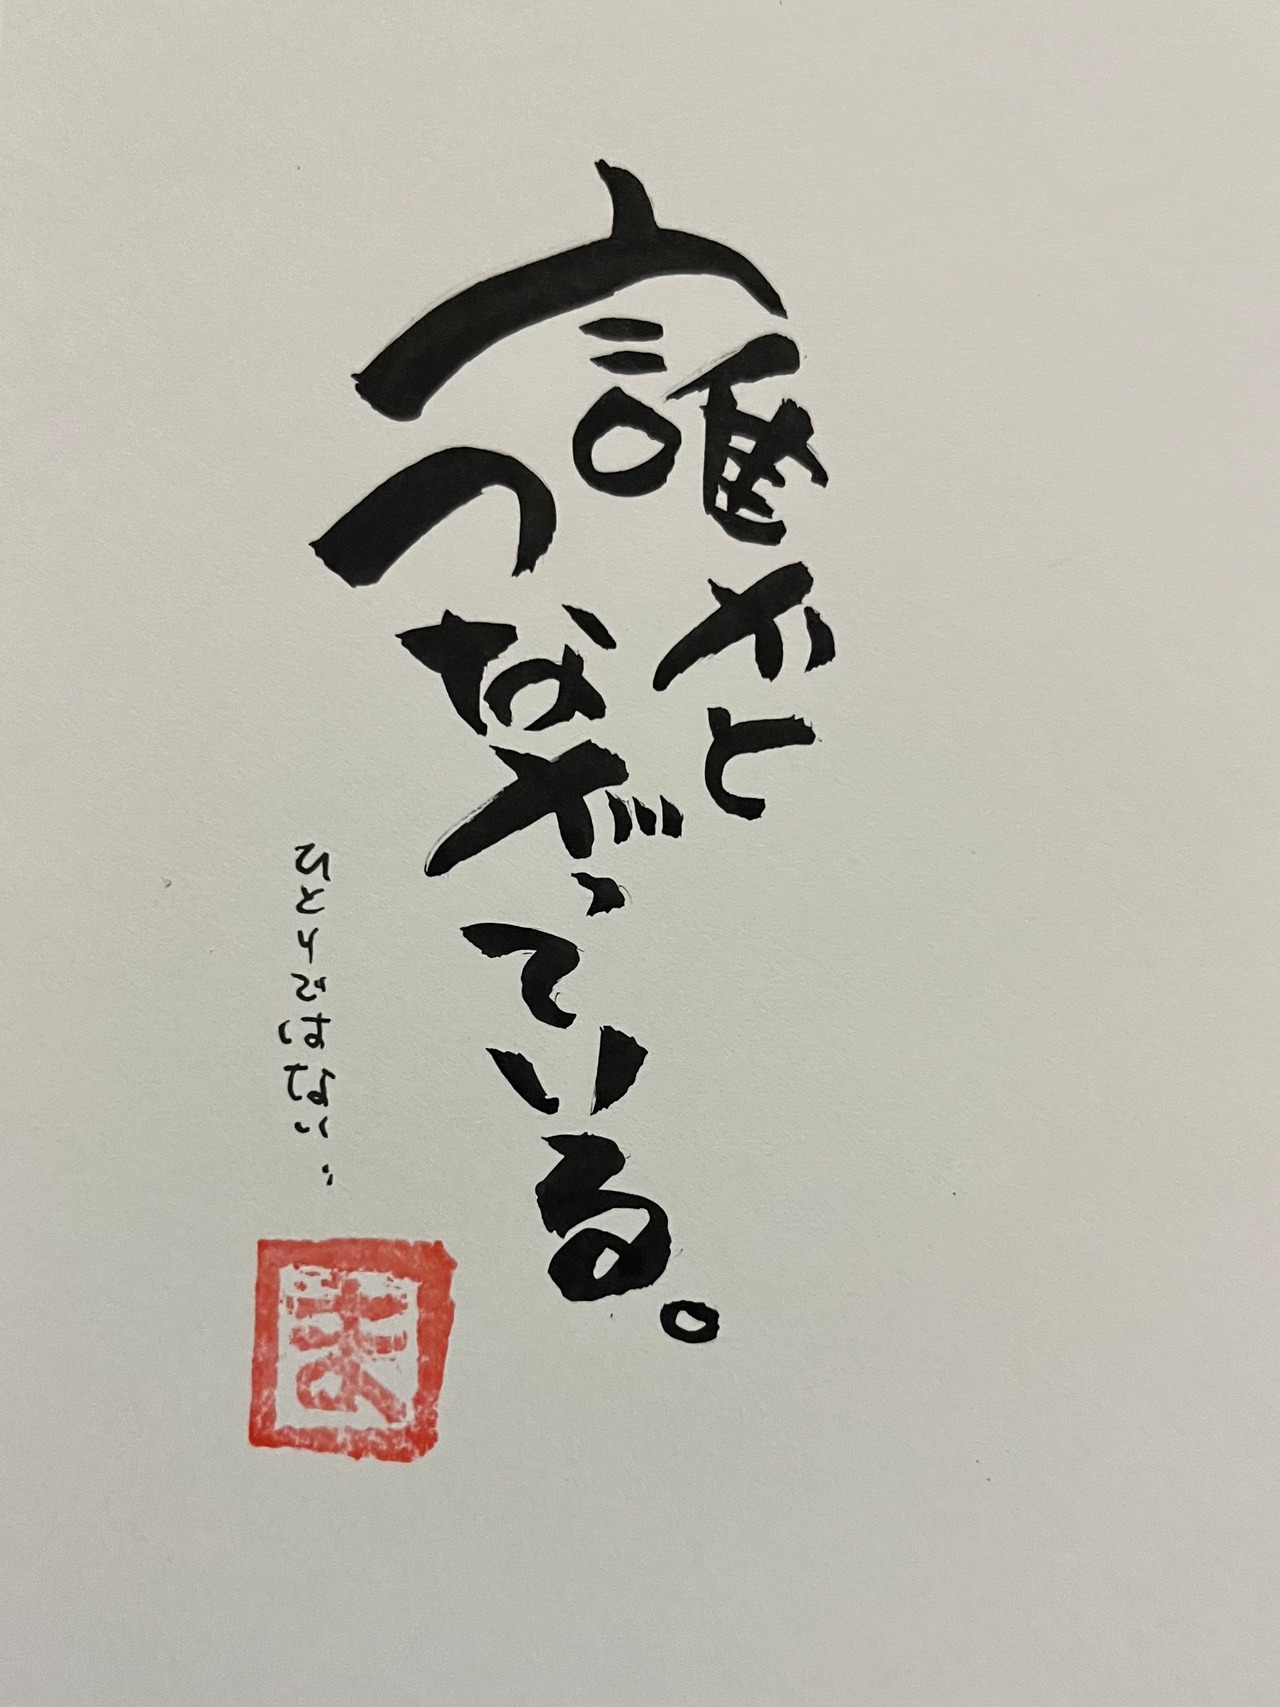 誰かと
つながっている。
ひとりではない…
ま